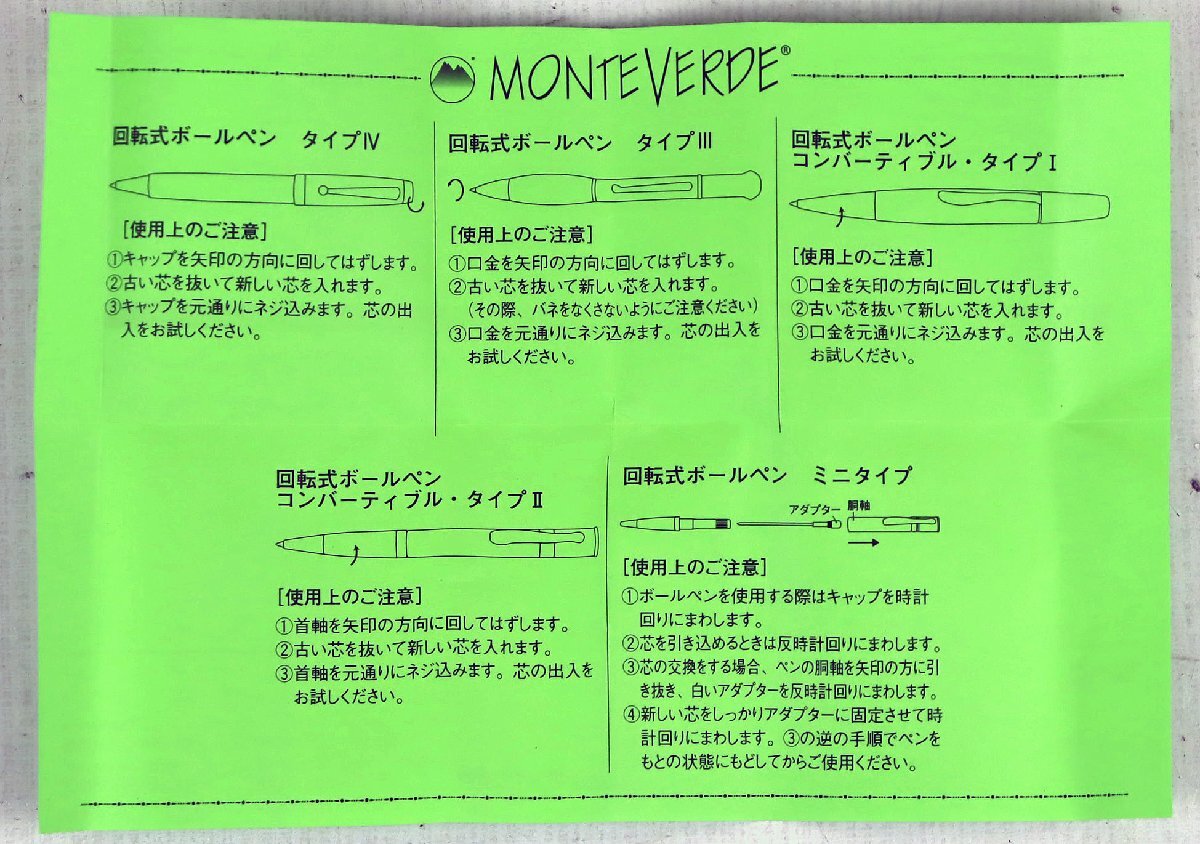 MONTEVERDE®
回転式ボールペン タイプⅣ
[使用上のご注意]
①キャップを矢印の方向に回してはずします。
②古い芯を抜いて新しい芯を入れます。
③キャップを元通りにネジ込みます。芯の出
入をお試しください。
回転式ボールペン タイプⅢ
[使用上のご注意]
①口金を矢印の方向に回してはずします。
②古い芯を抜いて新しい芯を入れます。
(その際、バネをなくさないようにご注意ください)
③口金を元通りにネジ込みます。芯の出入を
お試しください。
回転式ボールペン
コンバーティブル・タイプⅠ
[使用上のご注意]
①口金を矢印の方向に回してはずします。
②古い芯を抜いて新しい芯を入れます。
③口金を元通りにネジ込みます。芯の出入を
お試しください。
回転式ボールペン
コンバーティブル・タイプⅡ
[使用上のご注意]
①首軸を矢印の方向に回してはずします。
②古い芯を抜いて新しい芯を入れます。
③首軸を元通りにネジ込みます。芯の出入を
お試しください。
回転式ボールペン ミニタイプ
アダプター 胴軸
[使用上のご注意]
①ボールペンを使用する際はキャップを時計
回りにまわします。
②芯を引き込めるときは反時計回りにまわします。
③芯の交換をする場合、ペンの胴軸を矢印の方に引
き抜き、白いアダプターを反時計回りにまわします。
④新しい芯をしっかりアダプターに固定させて時
計回りにまわします。③の逆の手順でペンを
もとの状態にもどしてからご使用ください。